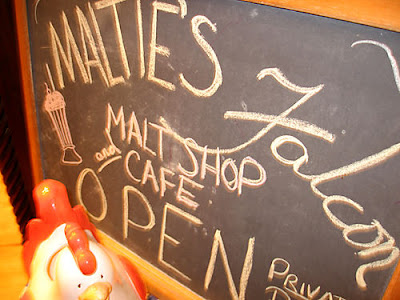 MALTIE'S
Falcon
MALT SHOP
and
CAFE
OPEN